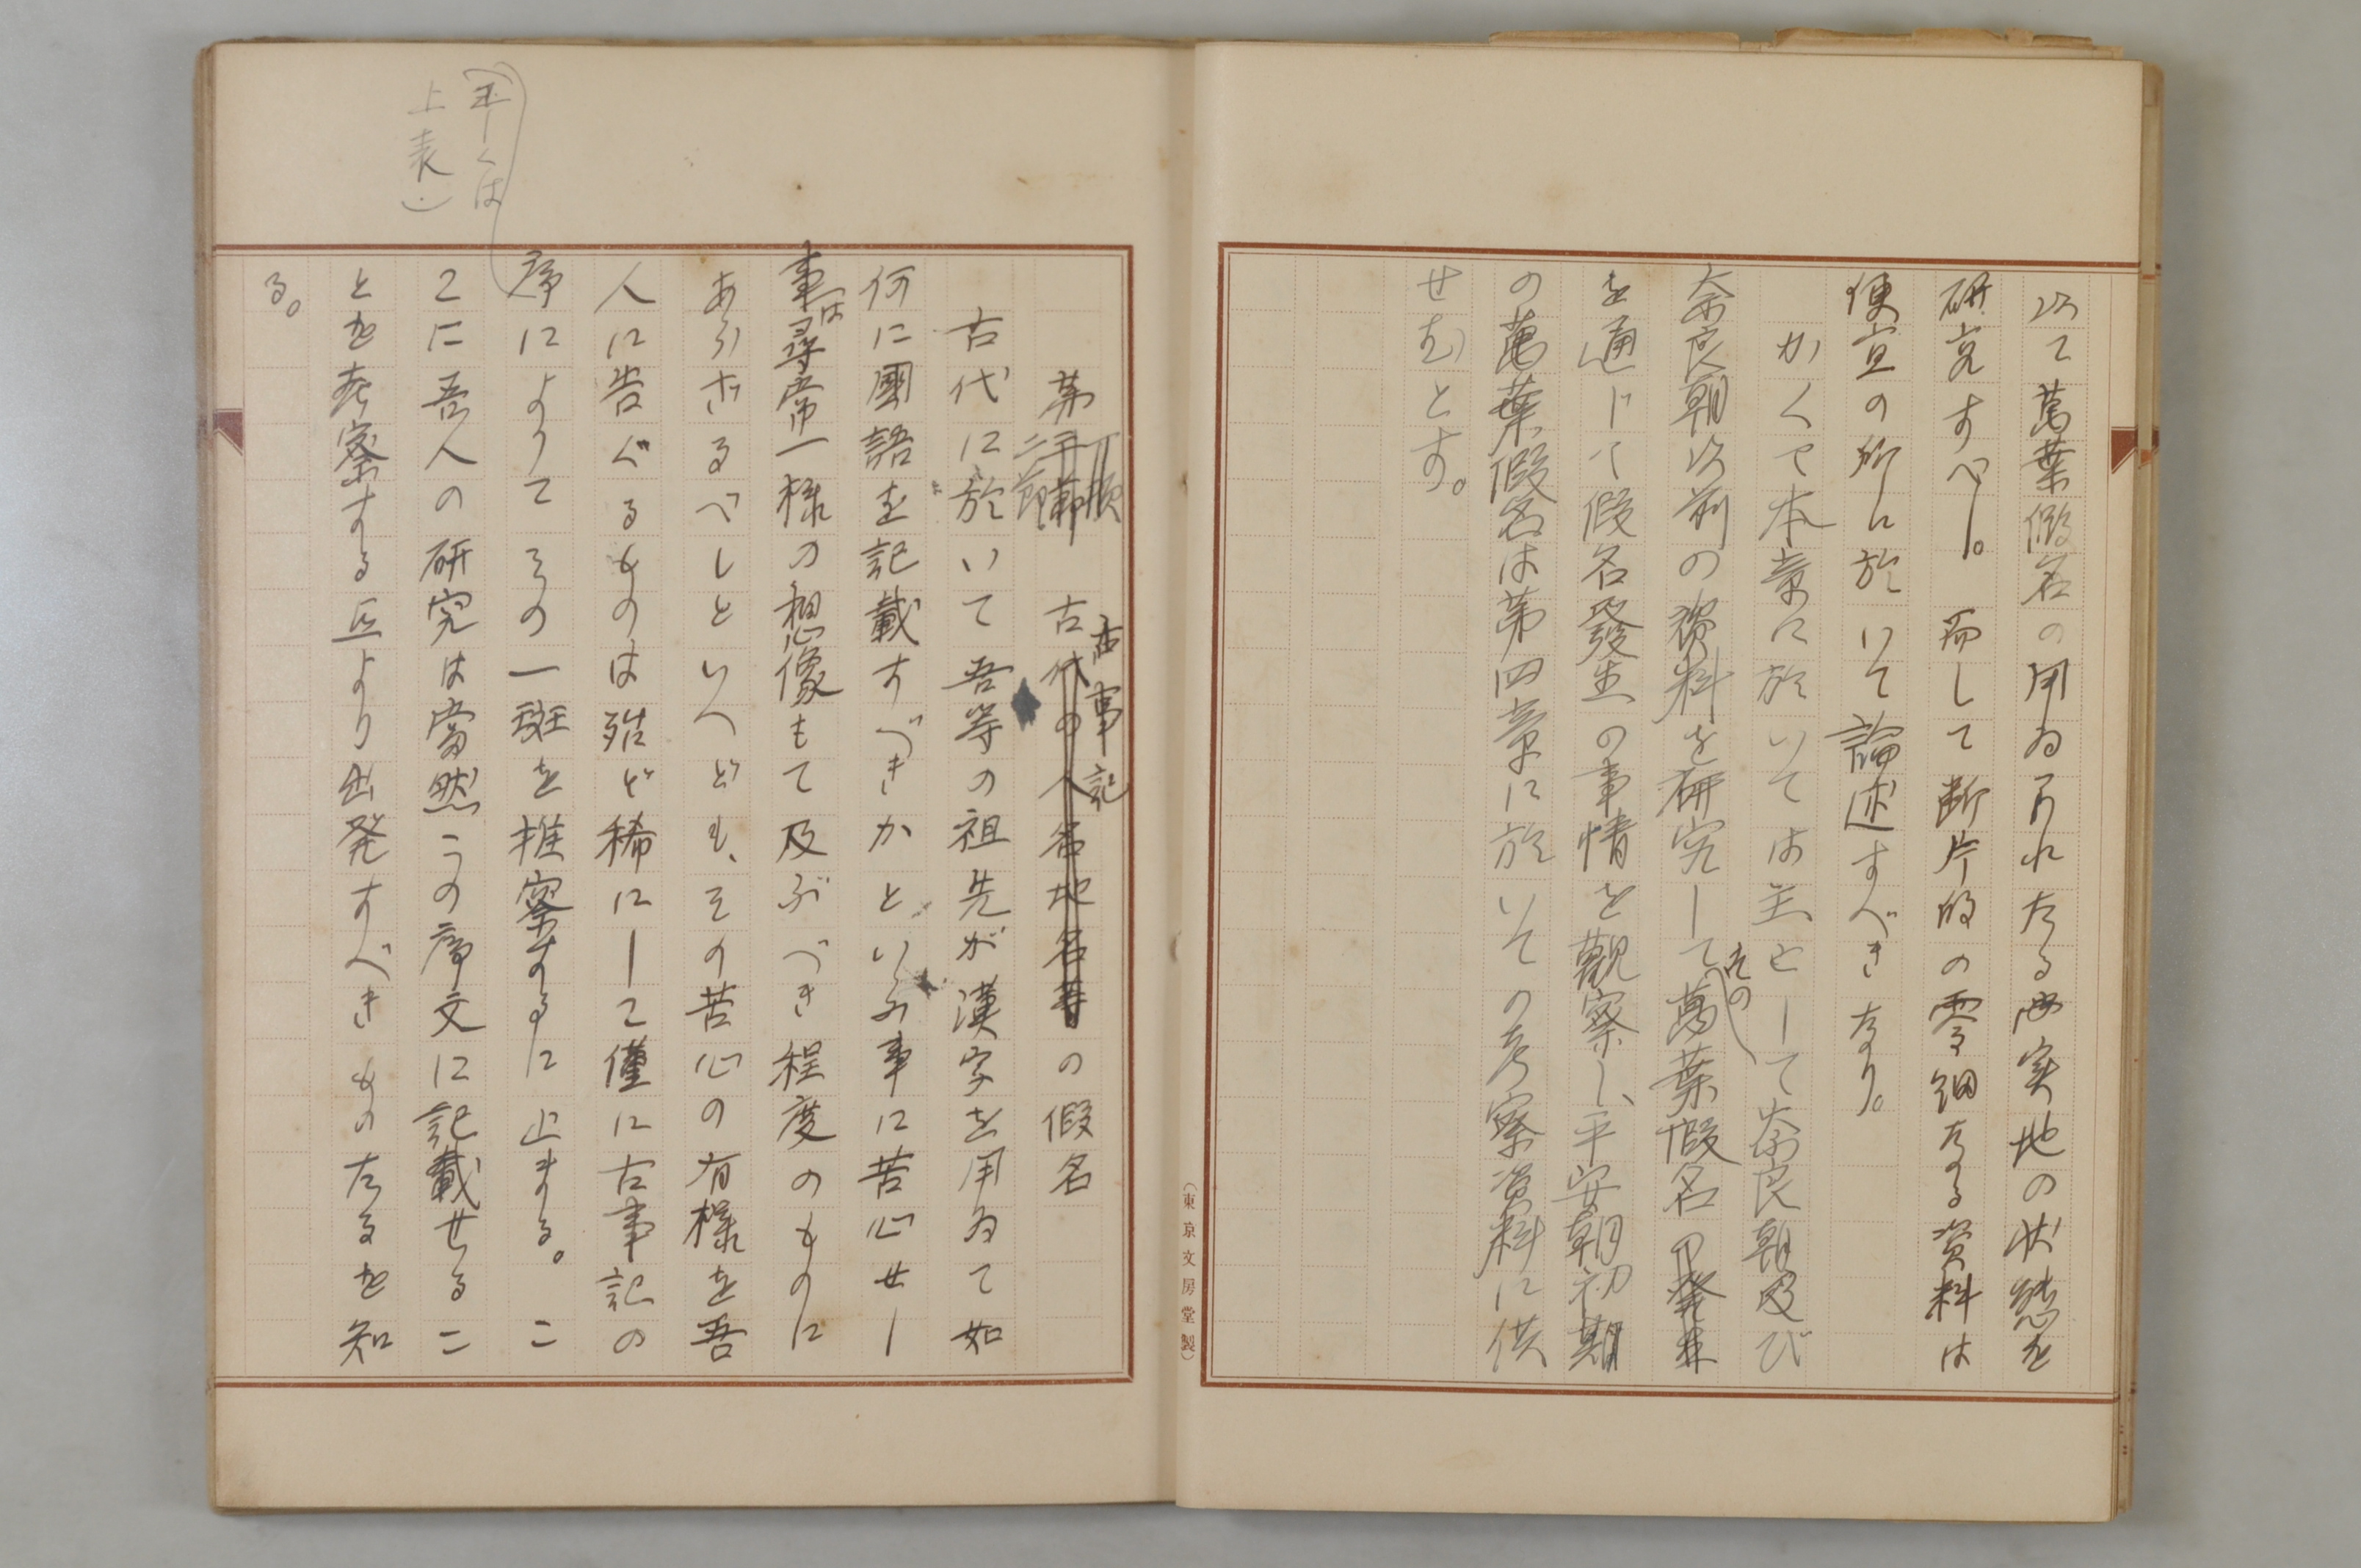 以て萬葉假名の用ゐられたる両実地の状態を
研究すべし。而して断片的の零細なる資料は
便宜の所に於いて論述すべきなり。
かくて本章に於いては主として奈良朝及び
奈良朝以前の資料を研究してその萬葉假名の発生
を通じて假名發生の事情を觀察し、平安朝初期
の萬葉假名は第四章に於いての考察資料に供
せむとす。
(東京文房堂製)
第二節 古事記の假名
古代に於いて吾等の祖先が漢字を用ゐて如
何に國語を記載すべきかといふ事に苦心せし
事は尋常一様の想像もて及ぶべき程度のものに
あらざるべしといへども、その苦心の有様を吾
人に告ぐるものは殆ど稀にして僅に古事記の
序によりてその一斑を推察するに止まる。こ
(若しくは
上表)
こに吾人の研究は當然この序文に記載せるこ
とを考察する点より出発すべきものたるを知
る。